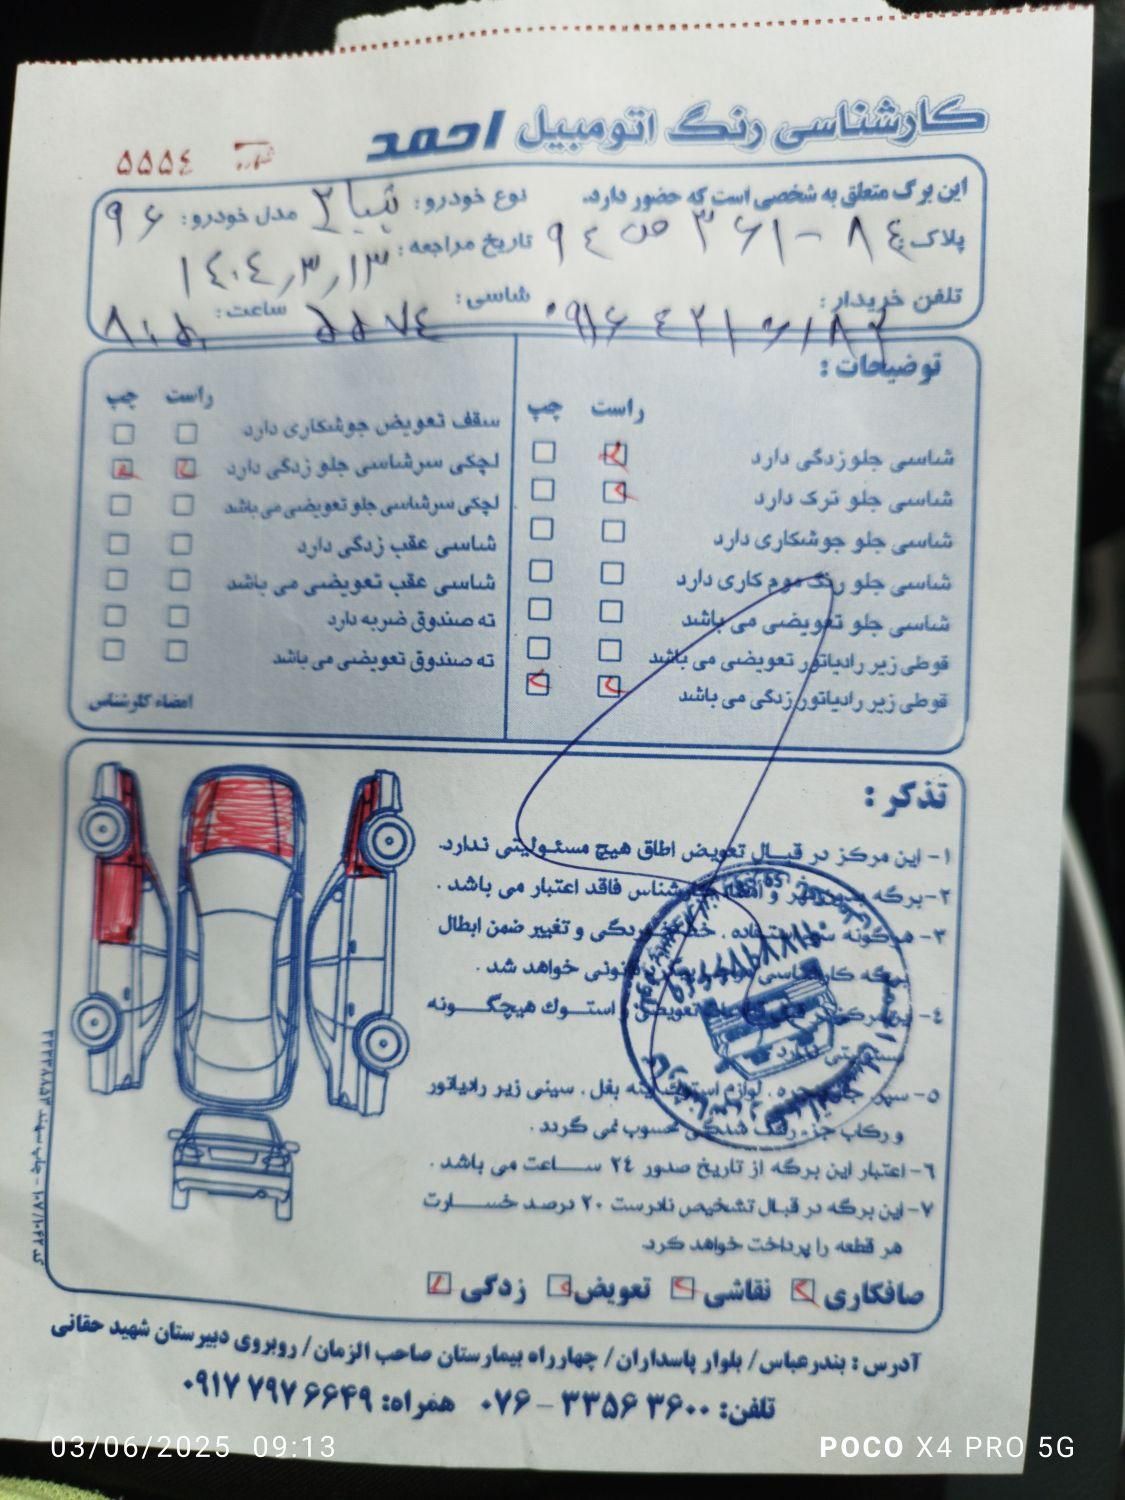 کارشناسی رنگ اتومبیل احمد
شماره ۵۵۵٤
این برگ متعلق به شخصی است که حضور دارد.
نوع خودرو: تیبا ۲
مدل خودرو: ۹۶
پلاک:
تاریخ مراجعه: ۱٤۰٤٫۳٫۱۳
تلفن خریدار:
شاسی: ۵۵۷٤
ساعت:
توضیحات :
راست چپ
شاسی جلو زدگی دارد
شاسی جلو ترک دارد
شاسی جلو جوشکاری دارد
شاسی جلو رنگ موم کاری دارد
شاسی جلو تعویضی می باشد
قوطی زیر رادیاتور تعویضی می باشد
قوطی زیر رادیاتور زدگی می باشد
راست چپ
سقف تعویض جوشکاری دارد
لچکی سرشاسی جلو زدگی دارد
لچکی سرشاسی جلو تعویضی می باشد
شاسی عقب زدگی دارد
شاسی عقب تعویضی می باشد
ته صندوق ضربه دارد
ته صندوق تعویضی می باشد
امضاء کارشناس
تذکر :
۱- این مرکز در قبال تعویض اطاق هیچ مسئولیتی ندارد.
۲- برگه بدون مهر و امضاء کارشناس فاقد اعتبار می باشد .
۳- هرگونه سوء استفاده . خط خوردگی و تغییر ضمن ابطال
برگه کارشناسی قانونی خواهد شد .
٤- این مرکز در قبال تعویضی و استوک هیچگونه
مسئولیتی ندارد
۵- سپر. جلو پنجره . لوازم استوک آینه بغل . سینی زیر رادیاتور
و رکاب جزء رنگ شدگی محسوب نمی گردد .
٦- اعتبار این برگه از تاریخ صدور ۲٤ ساعت می باشد .
۷- این برگه در قبال تشخیص نادرست ۲۰ درصد خسارت
هر قطعه را پرداخت خواهد کرد.
صافکاری نقاشی تعویض زدگی
آدرس : بندرعباس/ بلوار پاسداران/ چهارراه بیمارستان صاحب الزمان/ روبروی دبیرستان شهید حقانی
تلفن: ۳۳۵۶۳۶۰۰ - ۰۷۶ همراه: ۰۹۱۷ ۷۹۷ ۶۶۴۹
03/06/2025 09:13
POCO X4 PRO 5G